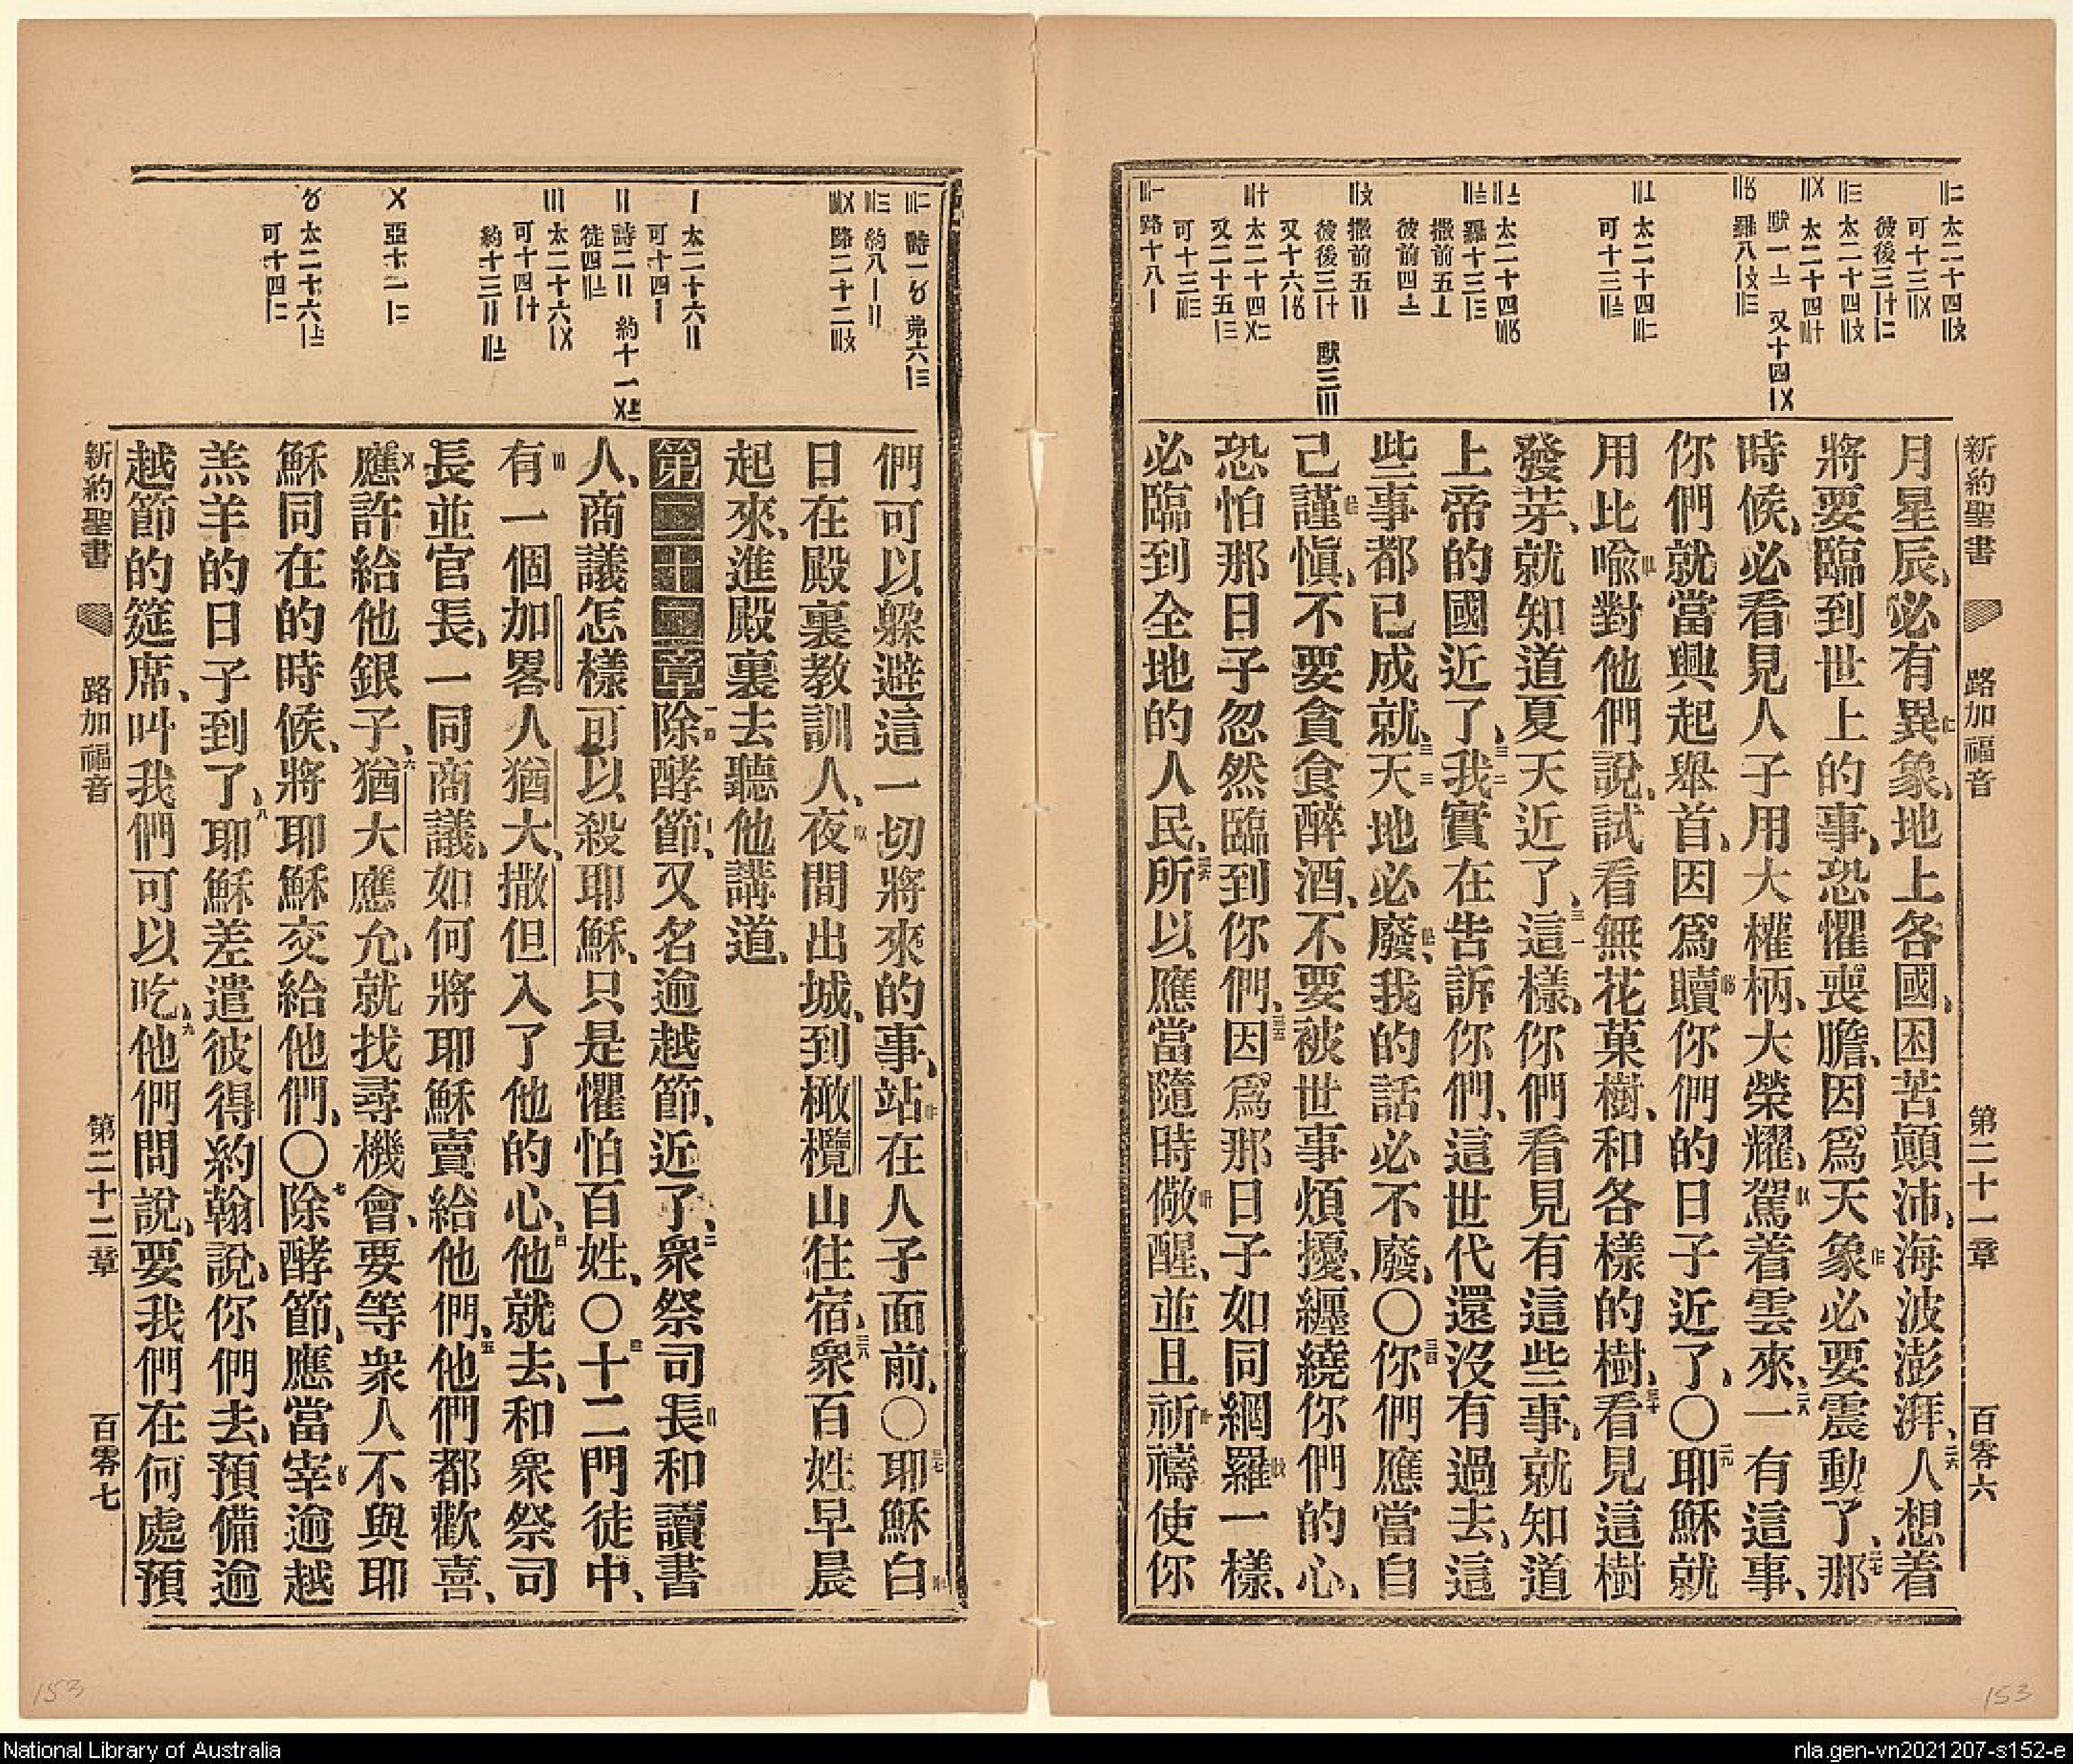 新約聖書 路加福音 第二十一章 百零六
月星辰、必有異象、地上各國、困苦顛沛、海波澎湃、二六人想着
將要臨到世上的事、恐懼喪膽、因爲天象必要震動了、二七那
時候、必看見人子用大權柄、大榮耀、駕着雲來、二八一有這事、
你們就當興起舉首、因爲贖你們的日子近了、〇二九耶穌就
用比喩對他們說、試看無花菓樹、和各樣的樹、三十看見這樹
發芽、就知道夏天近了、三一這樣、你們看見有這些事、就知道
上帝的國近了、三二我實在告訴你們、這世代還沒有過去、這
些事都已成就、三三天地必廢、我的話必不廢、〇三四你們應當自
己謹愼、不要貪食醉酒、不要被世事煩擾、纏繞你們的心、
恐怕那日子忽然臨到你們、三五因爲那日子如同網羅一樣、
必臨到全地的人民、三六所以應當隨時儆醒、並且祈禱使你
們可以躱避這一切將來的事、站在人子面前、〇三七耶穌白
日在殿裏教訓人、夜間出城、到橄欖山住宿、三八衆百姓早晨
起來、進殿裏去聽他講道、
第二十二章一除酵節、又名逾越節、近了、二衆祭司長和讀書
人、商議怎樣可以殺耶穌、只是懼怕百姓、〇三十二門徒中、
有一個加畧人猶大、撒但入了他的心、四他就去、和衆祭司
長並官長、一同商議、如何將耶穌賣給他們、五他們都歡喜、
應許給他銀子、六猶大應允、就找尋機會、要等衆人不與耶
穌同在的時候、將耶穌交給他們、〇七除酵節、應當宰逾越
羔羊的日子到了、八耶穌差遣彼得約翰說、你們去、預備逾
越節的筵席、叫我們可以吃、九他們問說、要我們在何處預
新約聖書 路加福音 第二十二章 百零七
153
153
National Library of Australia
nla.gen-vn2021207-s152-e